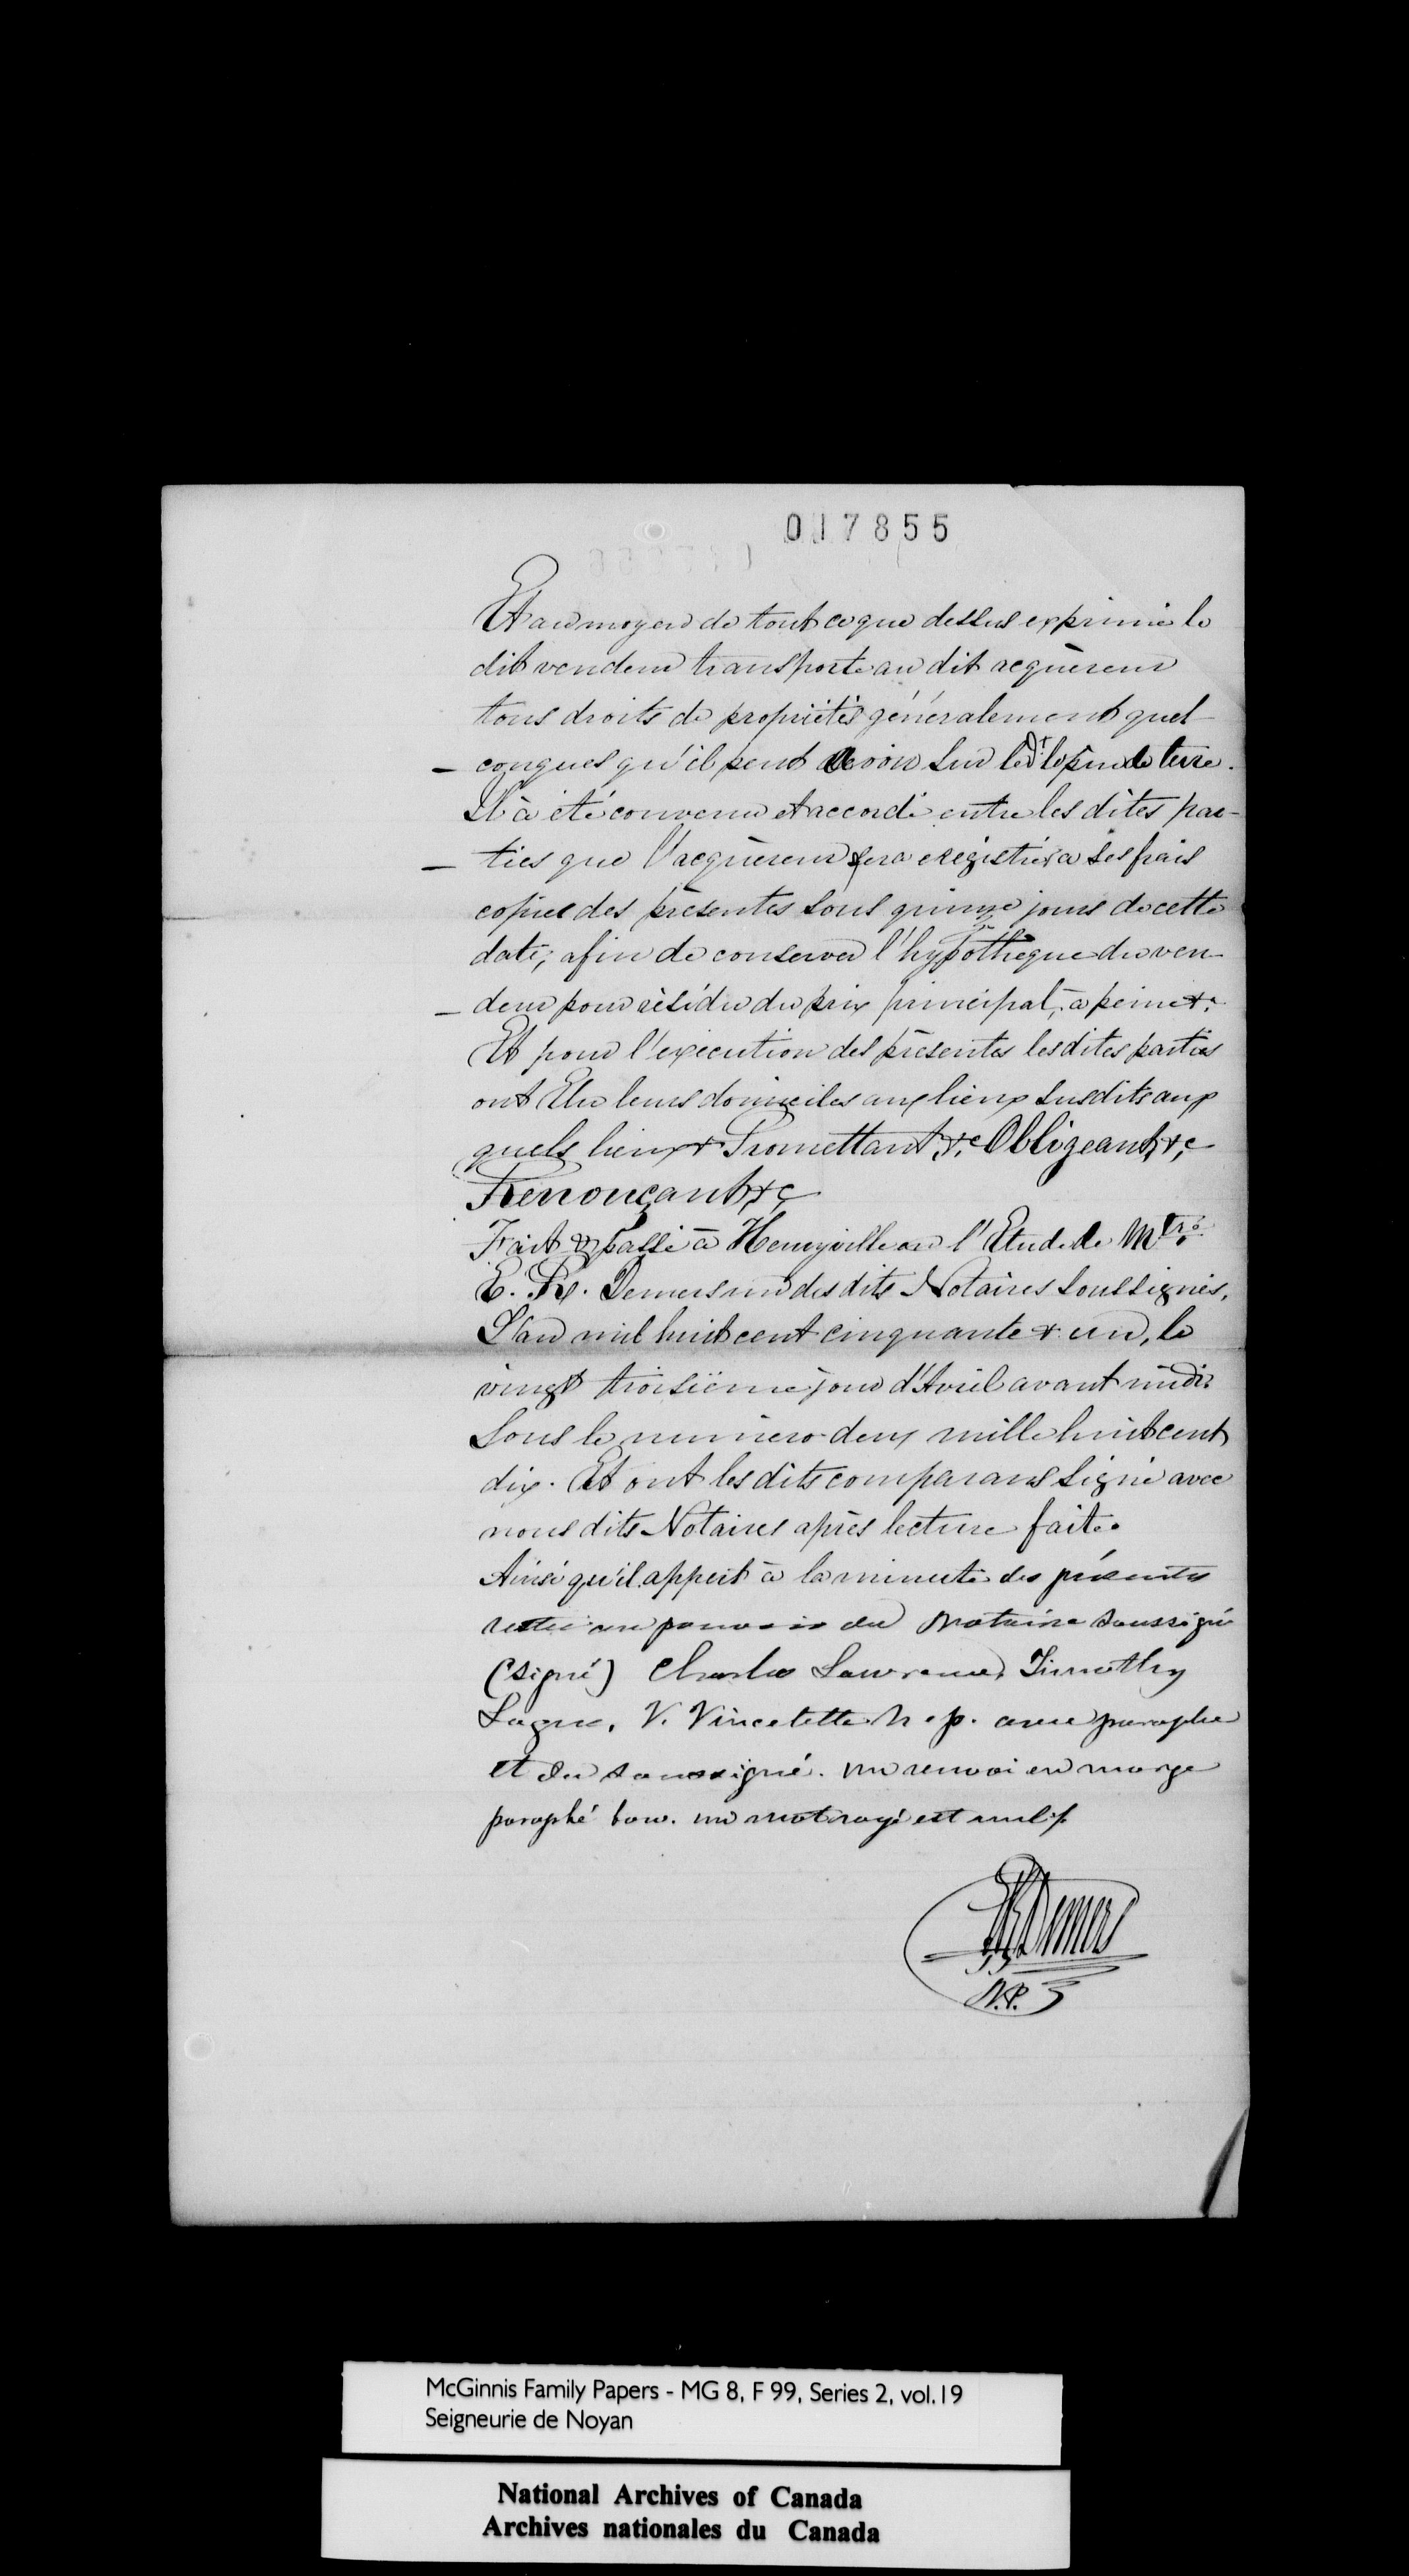 017855
Et au moyen de tout ce que dessus exprimé le
dit vendeur transporte au dit acquéreur
tous droits de propriétés généralement quel
– conques qu'il peut avoir sur le dt lopin de terre.
Il à été convenu et accordé entre les dites par-
– ties que l'acquéreur fera eregistrer à ses frais
copies des présentes sous quinze jours de cette
date; afin de conserver l'hypothèque du ven
– deur pour résidu du prix principal, à peine &c.
Et pour l'execution des présentes les dites parties
ont Elu leurs domiciles aux lieux susdits aux
quels lieux & Promettant &c. Obligeant, &c,
Renonçant &c
Fait & passé à Henryville en l'Etude de Mtre.
E. R. Demers un des dits Notaires soussignés,
L'an mil huit cent cinquante & un, le
vingt troisième jour d'Avril avant midi
Sous le numero deux mille huit cent
dix. Et ont les dits comparans signé avec
nous dits Notaires après lecture faite.
Ainsi qu'il appert à la minute des présentes
restée en pouvoir du Notaire soussigné
(signé) Charles Lawrence, Timothy
V. Vincelette N. p. avec paraphe
et du soussigné. un renvoi en marge
paraphé bon. un mot rayé est nul ./.
ER Demers
N.P.
McGinnis Family Papers - MG 8, F 99, Series 2, vol.19
Seigneurie de Noyan
National Archives of Canada
Archives nationales du Canada